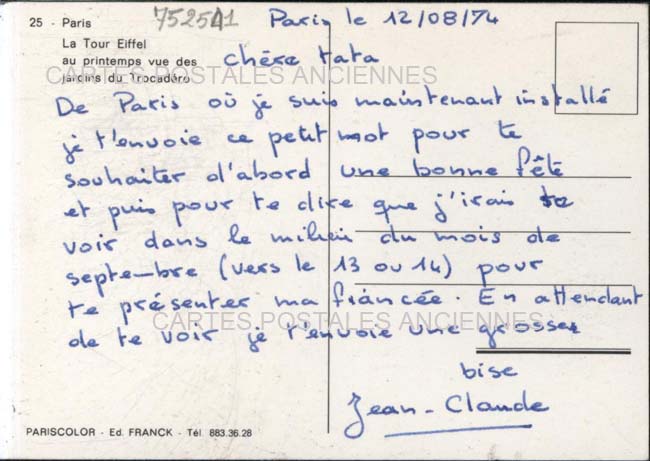 25 - Paris
752541
Paris le 12/08/74
La Tour Eiffel
au printemps vue des
jardins du Trocadéro
chère tata
CARTES POSTALES ANCIENNES
De Paris où je suis maintenant installé
je t'envoie ce petit mot pour te
souhaiter d'abord une bonne fête
et puis pour te dire que j'irais te
voir dans le milieu du mois de
septembre (vers le 13 ou 14) pour
te présenter ma fiancée. En attendant
CARTES POSTALES ANCIENNES
de te voir je t'envoie une grosse
bise
Jean-Claude
PARISCOLOR - Ed. FRANCK - Tél. 883.36.28